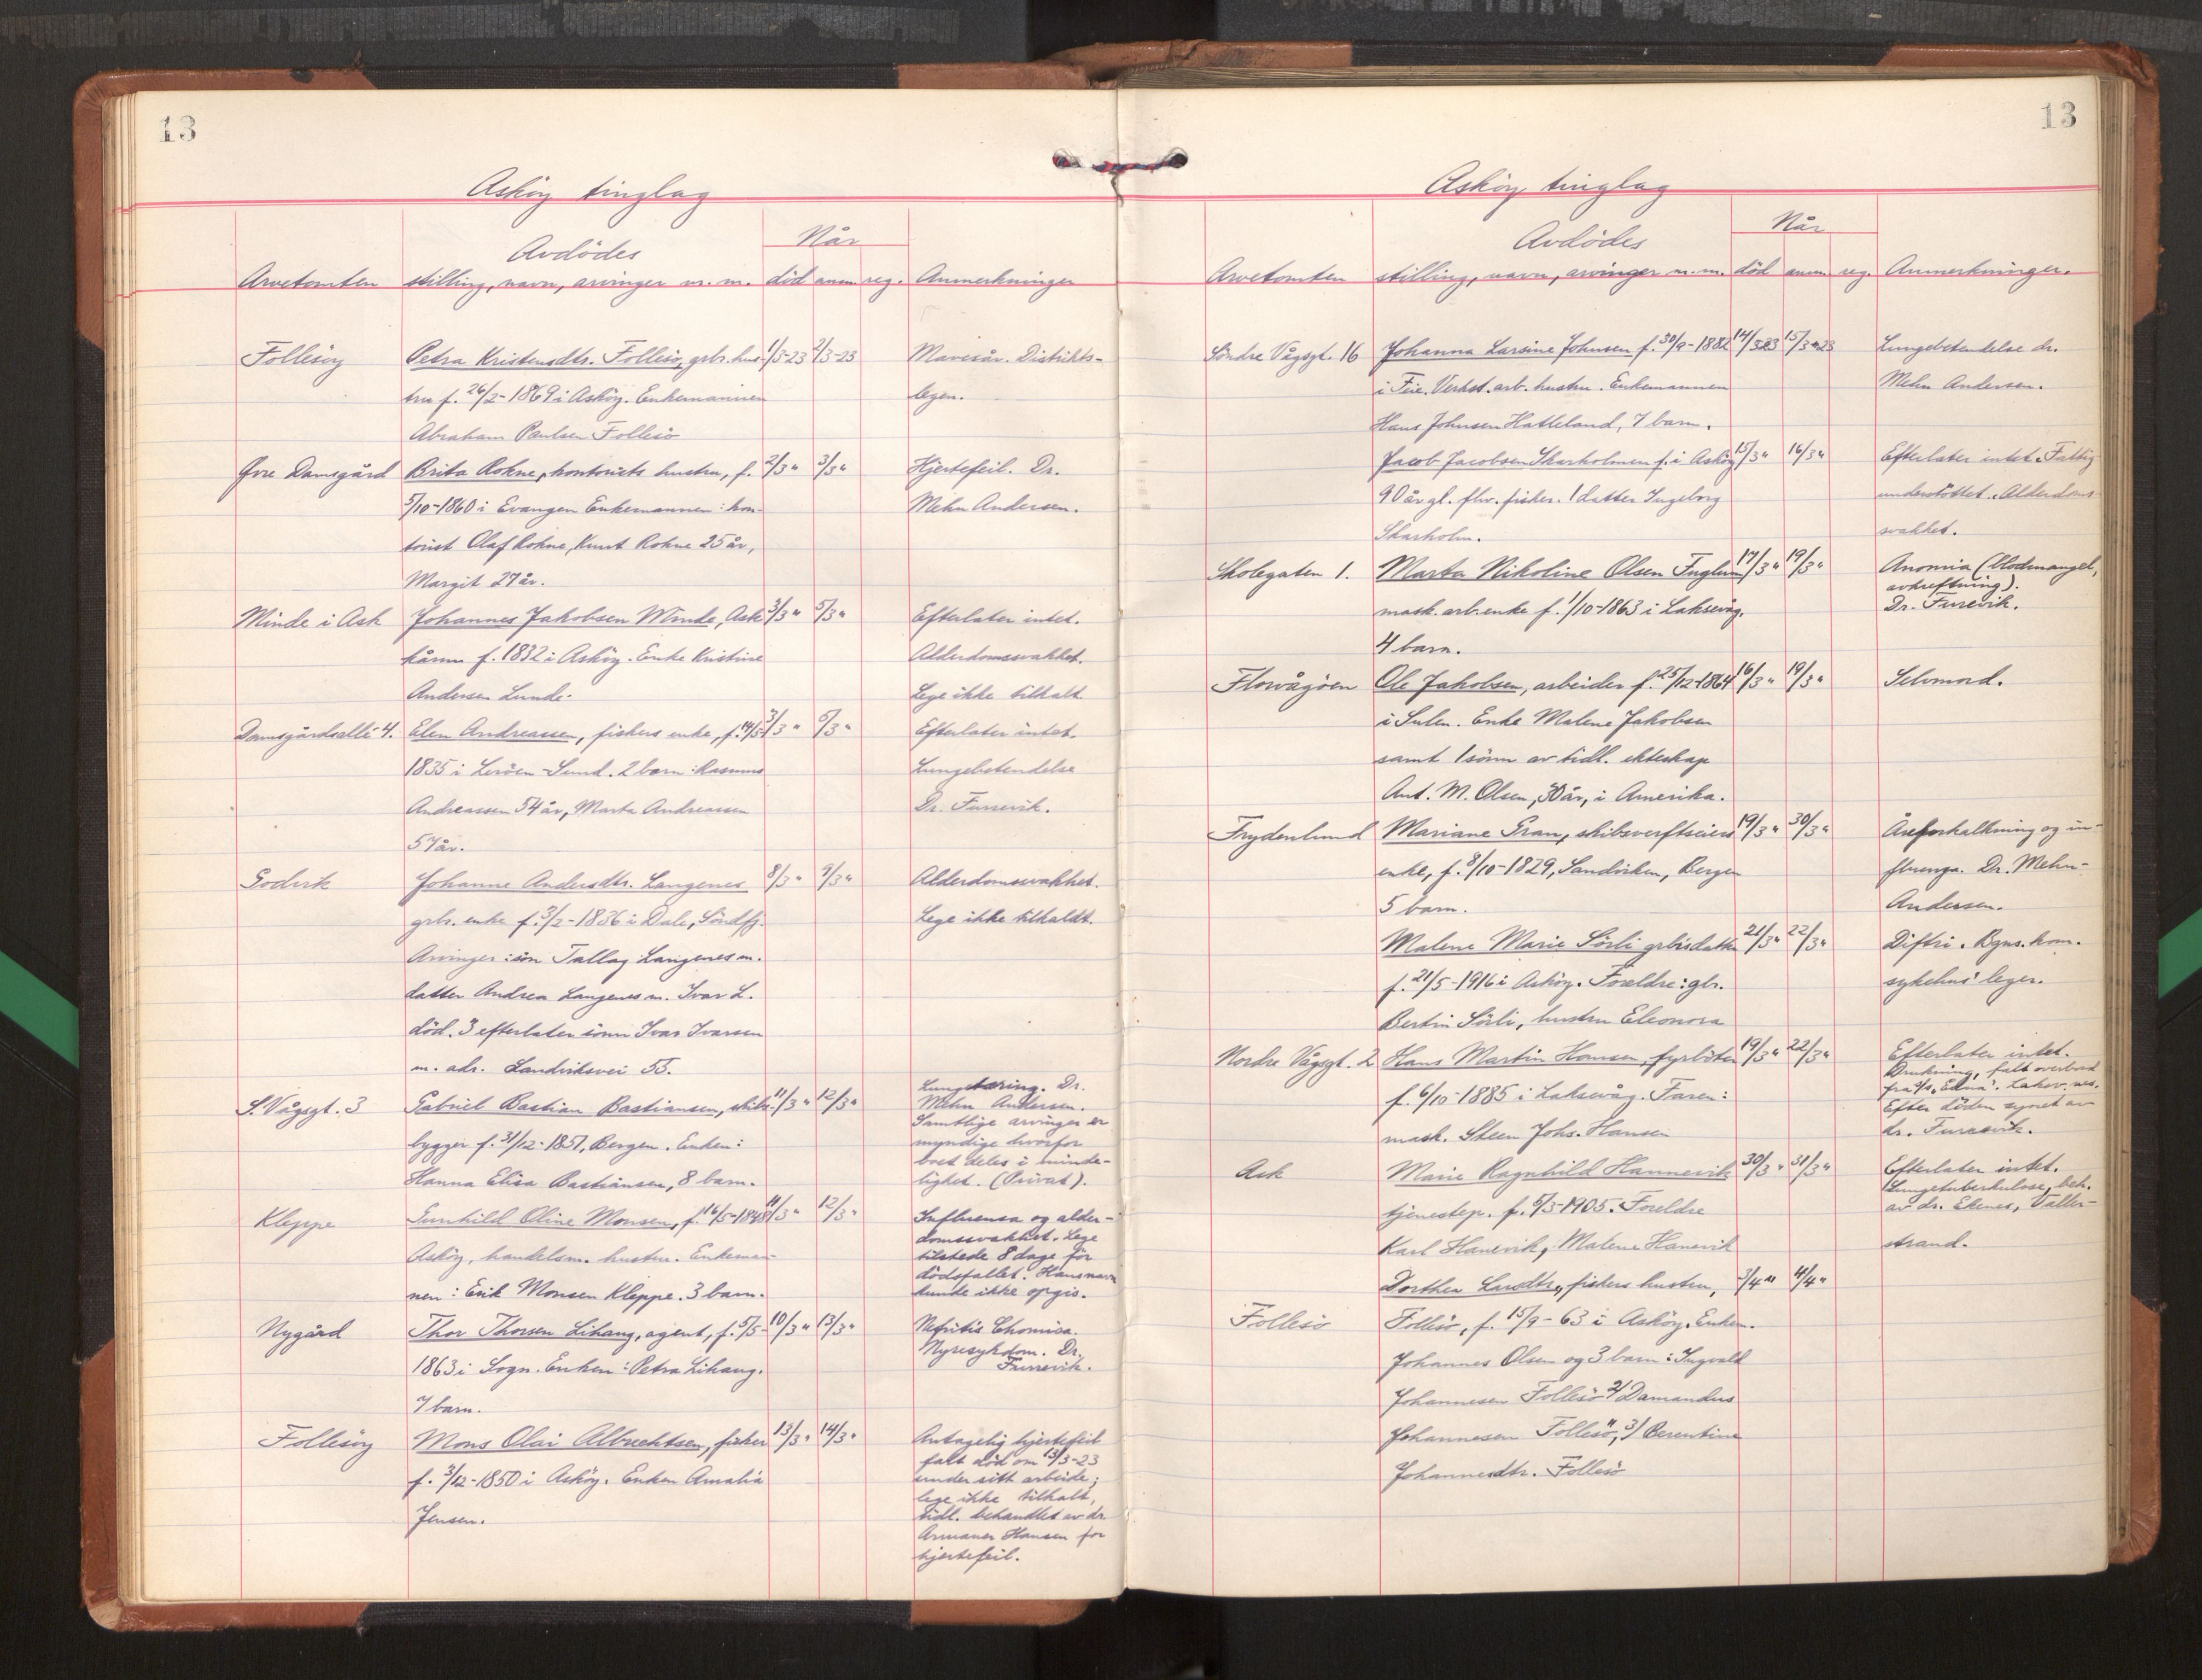 13
Askøy tinglag
Når
Avdödes
Arvetomten stilling, navn, arvinger m. m. död anm. reg. Anmerkninger
Follesöy Petra Kristensdtr. Follesö, grbr. hus- 1/3-23 2/3-23 Mavesår. Distrikts-
tru f. 26/2-1869 i Asköy. Enkemannen legen.
Abraham Paulsen Follesö
Øvre Damsgård Brita Rohne, kontorists hustru, f. 2/3 " 3/3 " Hjertefeil. Dr.
5/10-1860 i Evangen Enkemannen: kon- Mehn Andersen.
torist Olaf Rohne, Knut Rohne 25 år,
Margit 27 år.
Minde i Ask Johannes Jakobsen Minde, Ask 3/3 " 5/3 " Efterlater intet.
kårm. f. 1832 i Asköy. Enke Kristine Alderdomssvakhet.
Andersen Lunde. Lege ikke tilkalt
Damsgårdsallé 4. Elen Andreassen, fiskers enke, f. 14/5- 3/3 " 5/3 " Efterlater intet.
1835 i Leröen-Sund. 2 barn: Rasmus Lungebetendelse
Andreassen 54 år, Marta Andreassen Dr. Furrevik.
57 år.
Godvik Johanne Andersdtr. Langenes 8/3 " 9/3 " Alderdomssvakhet.
grbr. enke f. 3/2-1836 i Dale, Söndfj. Lege ikke tilkaldt.
Arvinger: sön Tallag Langenes m.
datter Andrea Langenes m. Ivar L.
död. 3 efterlater sönn Ivar Ivarsen
m. adr. Sandviksvei 55.
S. Vågsgt. 3 Gabriel Bastian Bastiansen, skibs- 11/3 " 12/3 " Lungetæring. Dr.
Mehn Andersen.
Samtlige arvinger er
bygger f. 31/12-1851, Bergen. Enken: myndige hvorfor
boet deles i minde-
Hanna Elisa Bastiansen, 8 barn. lighet. (Privat).
Kleppe Gunhild Oline Monsen, f. 16/5-1848 11/3 " 12/3 " Influensa og alder-
domssvakhet. Lege
Asköy, handelsm. hustru. Enkeman- tilstede 8 dage før
dödsfallet. Hans navn
nen: Erik Monsen Kleppe. 3 barn. kunde ikke opgis.
Nygård Thor Thorsen Lihaug, agent, f. 5/5- 10/3 " 13/3 " Nefritis Chronica.
Nyresykdom. Dr.
1863 i Sogn. Enken: Petra Lihaug. Furrevik.
7 barn.
Follesöy Mons Olai Albrechtsen, fisker 13/3 " 14/3 " Antagelig hjertefeil
falt död om 13/3-23
f. 3/12-1850 i Asköy. Enken Amalia under sitt arbeide;
lege ikke tilkalt,
Jensen. tidl. behandlet av dr.
Armauer Hansen for
hjertefeil.
13
Asköy tinglag
Når
Avdödes
Arvetomten stilling, navn, arvinger m. m. död anm. reg. Anmerkninger.
Söndre Vågsgt. 16 Johanna Larsine Johnsen f. 30/9-1882 14/3-23 15/3-23 Lungebetendelse dr.
i Feie. Verkst. arb. hustru. Enkemannen Mehn Andersen.
Hans Johnsen Hatleland, 7 barn.
Jacob Jacobsen Skarholmen f. i Asköy 15/3 " 16/3 " Efterlater intet. Fattig-
90 år gl. fhv. fisker. 1 datter Ingeborg understöttet. Alderdoms-
Skarholm. svakhet.
Skolegaten 1. Marta Nikoline Olsen Fuglum 17/3 " 19/3 " Anomia (blodmangel,
avkreftning).
mask. arb. enke f. 1/10-1863 i Laksevåg. Dr. Furrevik.
4 barn.
Florvågöen Ole Jakobsen, arbeider f. 25/12-1864 16/3 " 19/3 " Selvmord.
i Sulen. Enke Malene Jakobsen
samt 1 sönn av tidl. ekteskap
Ant. M. Olsen, 30 år, i Amerika.
Frydenlund Mariane Gran, skibsverftseiers 19/3 " 30/3 " Åreforkalkning og in-
enke, f. 8/10-1829, Sandviken, Bergen fluenza. Dr. Mehn-
5 barn. Andersen.
Malene Marie Sörli grbr's datter 21/3 " 22/3 " Diftri. Bgns. kom.
f. 21/5-1916 i Asköy. Foreldre: gbr. sykehus' leger.
Bertin Sörli, hustru Eleonora
Nordre Vågsgt. 2 Hans Martin Hansen, fyrböter 19/3 " 22/3 " Efterlater intet.
Drukning, falt overbord
f. 6/10-1885 i Laksevåg. Faren: fra s/s "Edna".
Efter döden synet av
mask. Steen Johs. Hansen dr. Furrevik.
Ask Marie Ragnhild Hannevik 30/3 " 31/3 " Efterlater intet.
Lungetuberkulose, beh.
tjenestep. f. 5/3-1905. Foreldre av dr. Ekenes, Valler-
Karl Hanevik, Malene Hanevik strand.
Dorthea Larsdtr., fiskers hustru, 3/4 " 4/4 "
Follesö Follesö, f. 15/9-63 i Asköy. Enkem.
Johannes Olsen og 3 barn: Ingvald
Johannesen Follesö 2/ Damandus
Johannesen Follesö, 3/ Berentine
Johannesdtr. Follesö